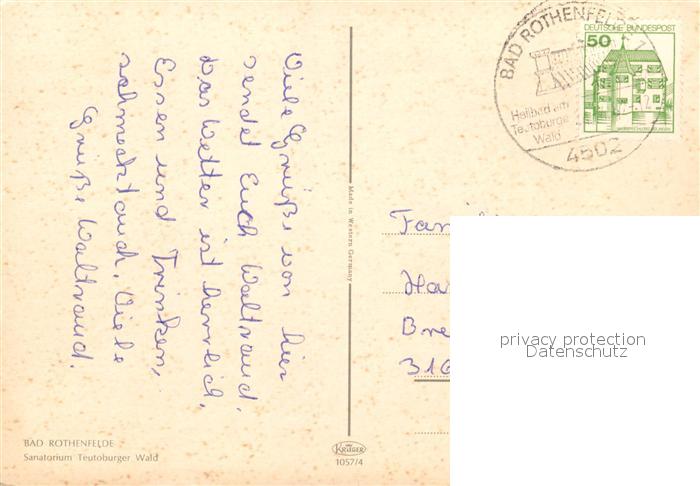 Viele Grüße von hier
sendet Euch Waltraud.
Das Wetter ist herrlich,
Essen und Trinken,
schmeckt auch. Viele
Grüße Waltraud.
BAD ROTHENFELDE
Sanatorium Teutoburger Wald
Made in Western Germany
KRÜGER
1057/4
BAD ROTHENFELDE
Heilbad am
Teutoburger
Wald
4502
DEUTSCHE BUNDESPOST
50
Fam
Ha
Bre
310
privacy protection
Datenschutz